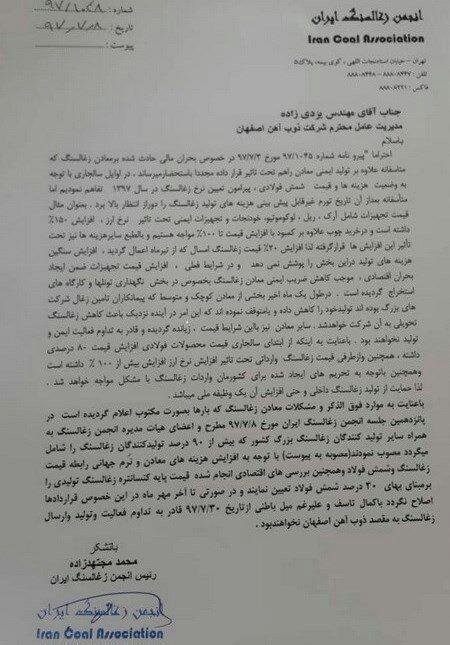 انجمن زغالسنگ ایران
Iran Coal Association
شماره : ۹۷/۱۰۶۸
تاریخ : ۹۷-۷-۸
پیوست :
تهران - خیابان استادنجات اللهی ، کوی بیمه، پلاک۵
تلفن : ۸۸۸۰۸۴۴۷- ۸۸۸۰۸۴۴۸
فاکس : ۸۸۸۰۸۲۲۱
جناب آقای مهندس یزدی زاده
مدیریت عامل محترم شرکت ذوب آهن اصفهان
باسلام
احتراما " پیرو نامه شماره ۹۷/۱۰۴۵ مورخ ۹۷/۷/۳ در خصوص بحران مالی حادث شده برمعادن زغالسنگ که
متاسفانه علاوه بر تولید ایمنی معادن راهم تحت تاثیر قرار داده مجددا باستحضارمیرساند ، در اوایل سالجاری با توجه
به وضعیت هزینه ها و قیمت شمش فولادی ، پیرامون تعیین نرخ زغالسنگ در سال ۱۳۹۷ تفاهم نمودیم اما
متأسفانه بعداز آن تاریخ تورم غیرقابل پیش بینی هزینه های تولید زغالسنگ را دوراز انتظار بالا برد . بعنوان مثال
قیمت تجهیزات شامل آرک ، ریل ، لوکوموتیو، خودنجات و تجهیزات ایمنی تحت تاثیر نرخ ارز ، افزایش ۱۵۰٪
داشته است و درخرید چوب علاوه بر کمبود با افزایش قیمت تا ۱۰۰٪ مواجه هستیم و بالطبع سایرهزینه ها نیز تحت
تأثیر این افزایش ها قرارگرفته لذا افزایش ۲۰٪ قیمت زغالسنگ امسال که از تیرماه اعمال گردید ، افزایش سنگین
هزینه های تولید دراین بخش را پوشش نمی دهد و در شرایط فعلی ، افزایش قیمت تجهیزات ضمن ایجاد
بحران اقتصادی ، موجب کاهش ضریب ایمنی معادن زغالسنگ بخصوص در بخش نگهداری تونلها و کارگاه های
استخراج گردیده است . درطول یک ماه اخیر بخشی از معادن کوچک و متوسط که پیمانکاران تامین زغال شرکت
های بزرگ بوده اند تولیدخود را کاهش داده و یامتوقف نموده اند که این امر در آینده نزدیک باعث کاهش زغالسنگ
تحویلی به آن شرکت خواهدشد. سایر معادن نیز بااین شرایط قیمت ، زیانده گردیده و قادر به تداوم فعالیت ایمن و
تولید نخواهند بود . باعنایت به اینکه از ابتدای سالجاری قیمت محصولات فولادی افزایش قیمت ۸۰ درصدی
داشته ، همچنین وازطرفی قیمت زغالسنگ وارداتی تحت تاثیر افزایش نرخ ارز افزایش بیش از ۱۰۰ ٪ داشته است
وهمچنین باتوجه به تحریم های ایجاد شده برای کشورمان واردات زغالسنگ با مشکل مواجه خواهد شد .
لذا حمایت از تولید زغالسنگ داخلی و حتی افزایش آن یک وظیفه ملی میباشد .
باعنایت به موارد فوق الذکر و مشکلات معادن زغالسنگ که بارها بصورت مکتوب اعلام گردیده است در
پانزدهمین جلسه انجمن زغالسنگ ایران مورخ ۹۷/۷/۸ مطرح و اعضای هیات مدیره انجمن زغالسنگ به
همراه سایر تولید کنندگان زغالسنگ بزرگ کشور که بیش از ۹۰ درصد تولیدکنندگان زغالسنگ را شامل
میگردد مصوب نمودند(مصوبه به پیوست) با توجه به افزایش هزینه های معادن و نُرم جهانی رابطه قیمت
زغالسنگ وشمش فولاد وهمچنین بررسی های اقتصادی انجام شده قیمت پایه کنسانتره زغالسنگ تولیدی را
برمبنای بهای ۳۰ درصد شمش فولاد تعیین نمایند و در صورتی تا آخر مهر ماه در این خصوص قراردادها
اصلاح نگردد باکمال تاسف و علیرغم میل باطنی ازتاریخ ۹۷/۷/۳۰ قادر به تداوم فعالیت وتولید وارسال
زغالسنگ به مقصد ذوب آهن اصفهان نخواهندبود .
باتشکر
محمد مجتهدزاده
رئیس انجمن زغالسنگ ایران
انجمن زغالسنگ ایران
Iran Coal Association